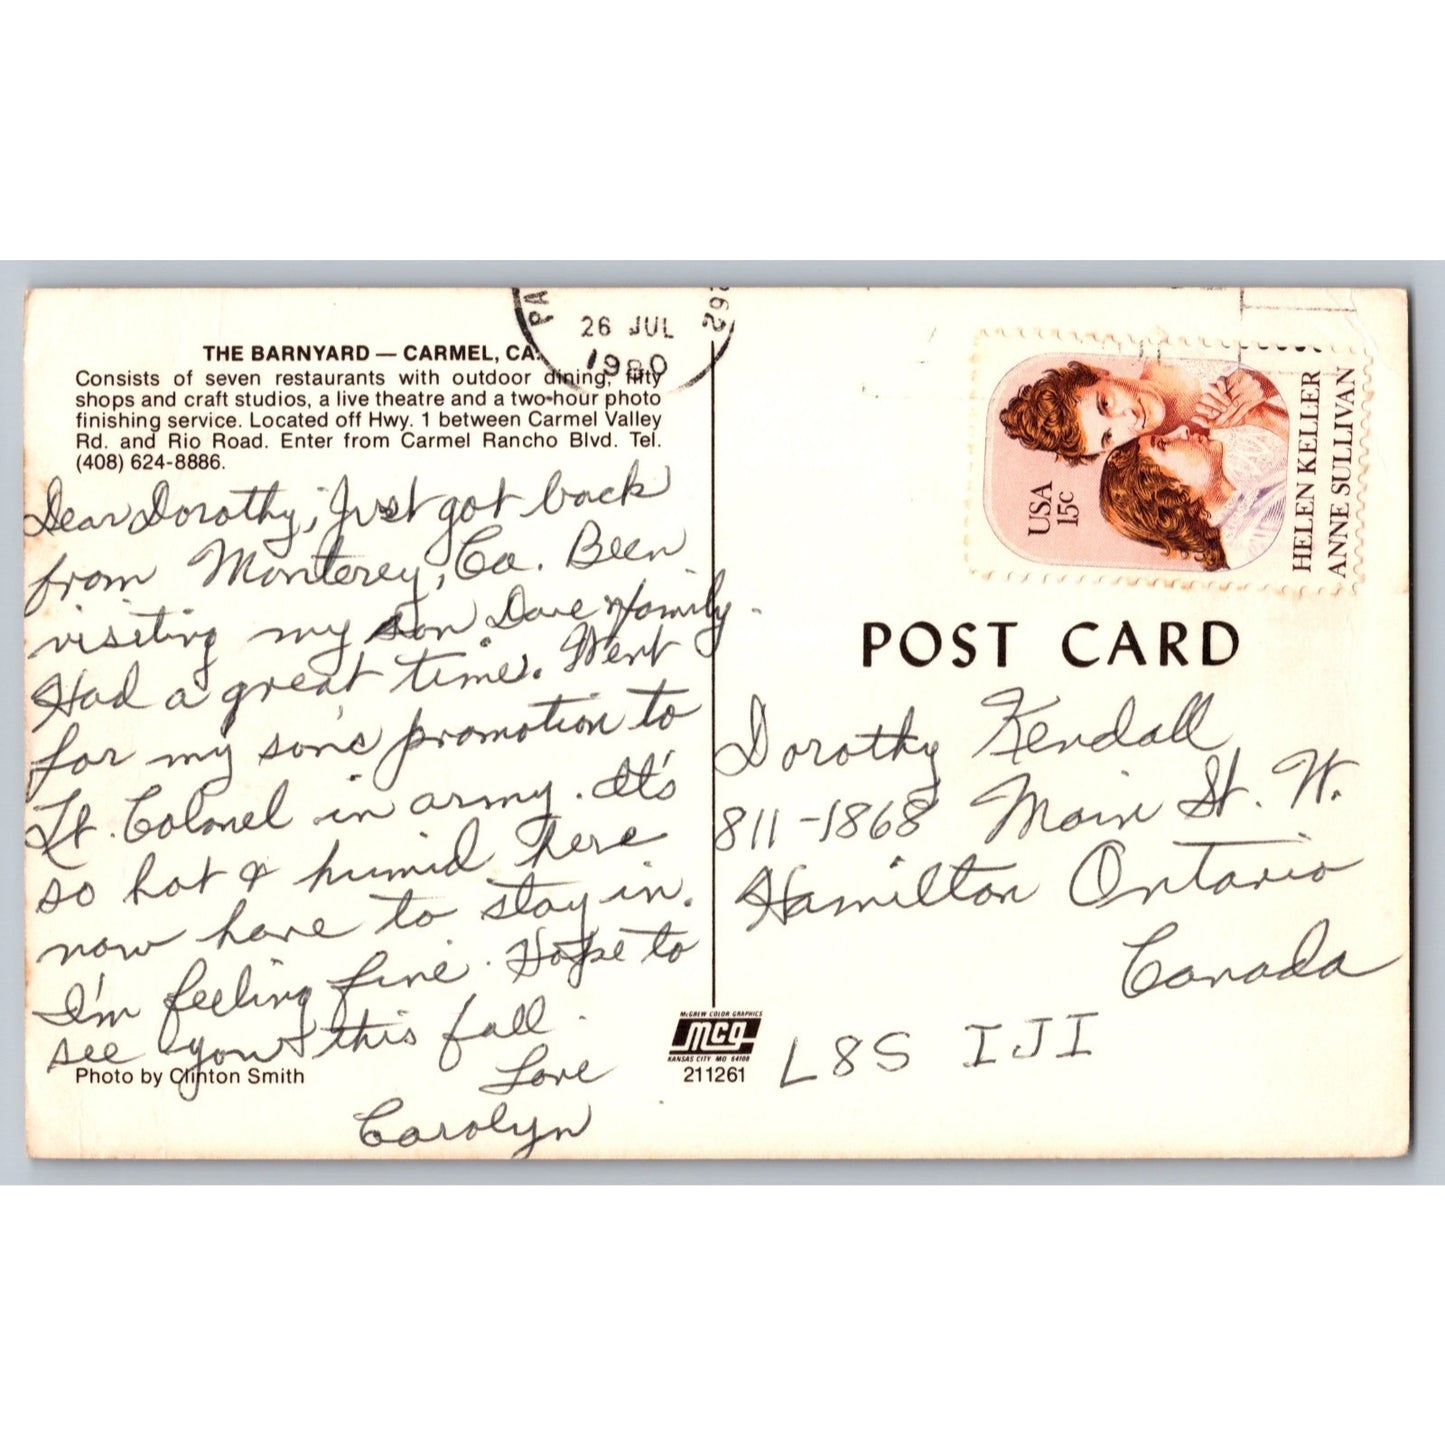 26 JUL
1980
THE BARNYARD — CARMEL, CA.
Consists of seven restaurants with outdoor dining, fifty
shops and craft studios, a live theatre and a two-hour photo
finishing service. Located off Hwy. 1 between Carmel Valley
Rd. and Rio Road. Enter from Carmel Rancho Blvd. Tel.
(408) 624-8886.
Dear Dorothy; Just got back
from Monterey, Ca. Been
visiting my son Dave & family.
Had a great time. Went
for my son's promotion to
Lt. Colonel in army. It's
so hot & humid here
now have to stay in.
I'm feeling fine. Hope to
see you this fall.
Love
Carolyn
Photo by Clinton Smith
McGREW COLOR GRAPHICS
MCG
KANSAS CITY MO 64108
211261
USA
15c
HELEN KELLER
ANNE SULLIVAN
POST CARD
Dorothy Kendall
811-1868 Main St. W.
Hamilton Ontario
Canada
L8S 1J1